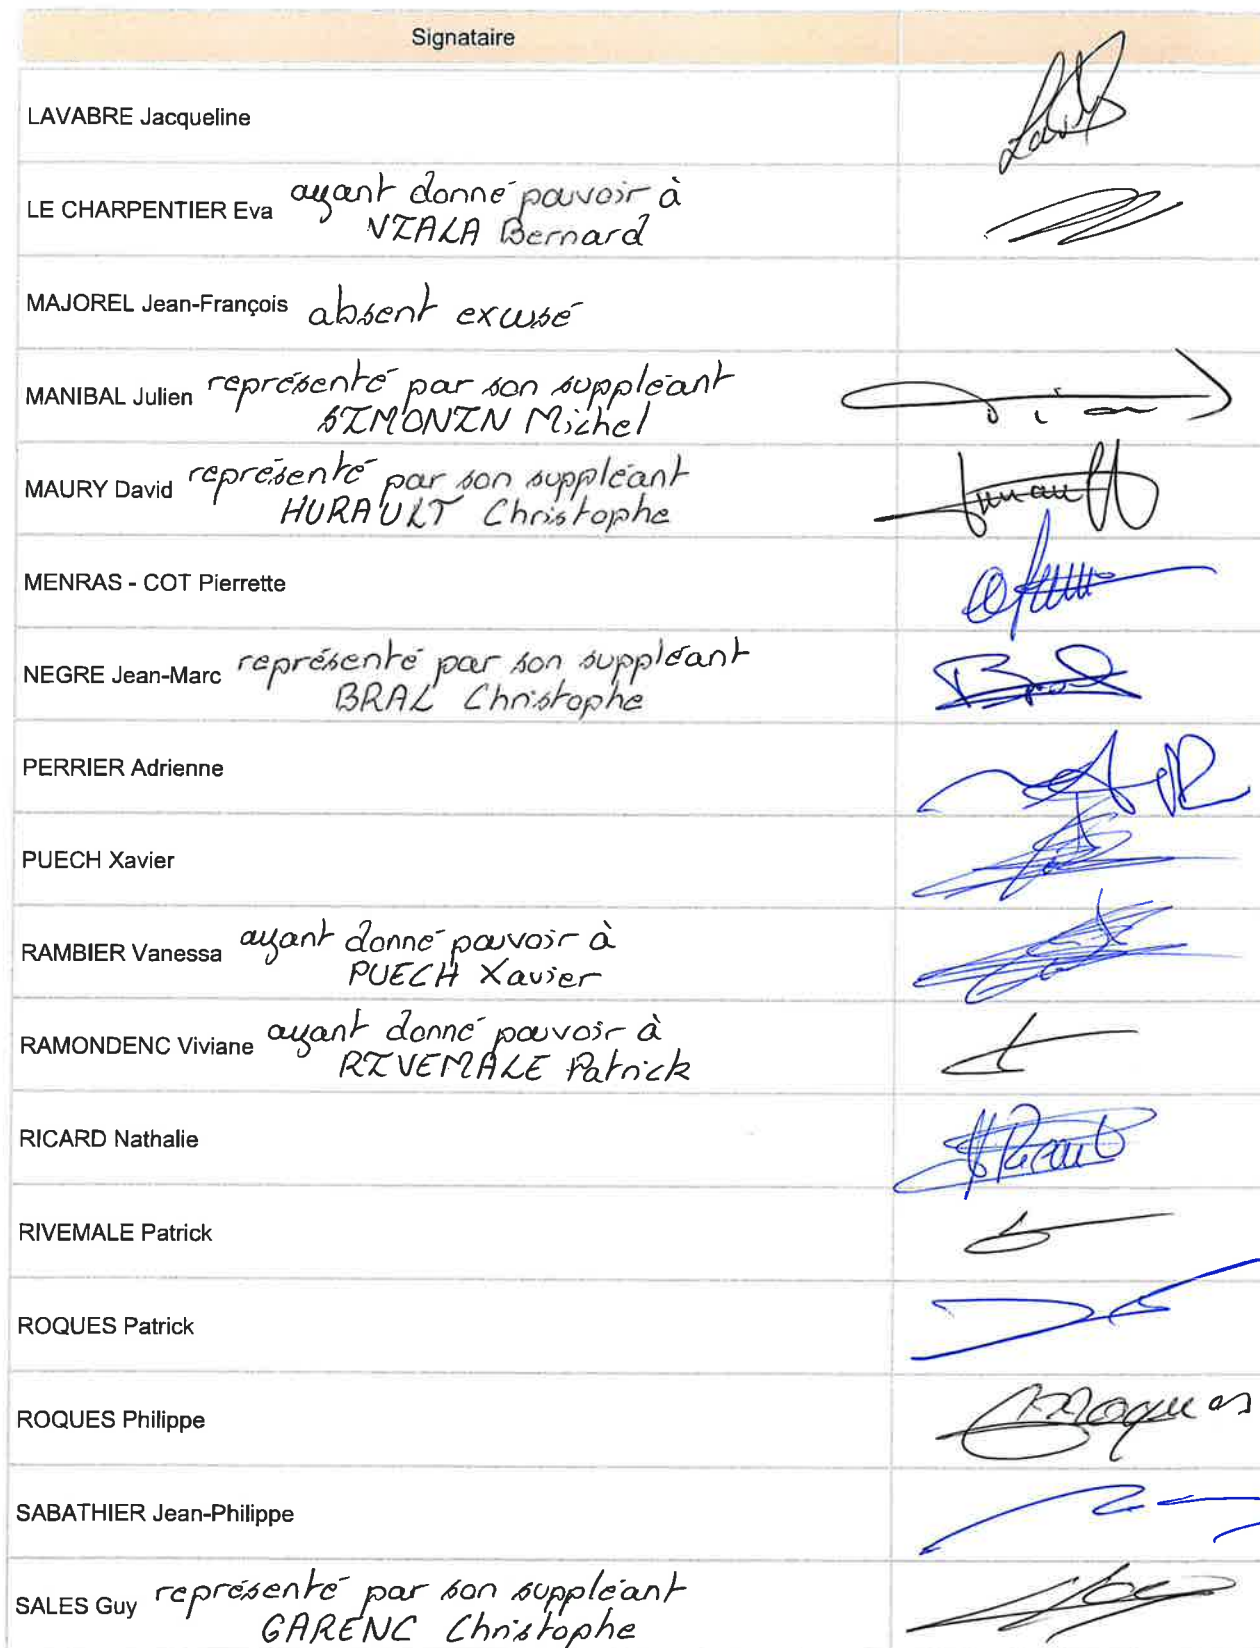 Signataire
LAVABRE Jacqueline
LE CHARPENTIER Eva ayant donné pouvoir à
VIALA Bernard
MAJOREL Jean-François absent excusé
MANIBAL Julien représenté par son suppléant
SIMONIN Michel
MAURY David représenté par son suppléant
HURAULT Christophe
MENRAS - COT Pierrette
NEGRE Jean-Marc représenté par son suppléant
BRAL Christophe
Bral
PERRIER Adrienne
PUECH Xavier
RAMBIER Vanessa ayant donné pouvoir à
PUECH Xavier
RAMONDENC Viviane ayant donné pouvoir à
RIVEMALE Patrick
RICARD Nathalie
RIVEMALE Patrick
ROQUES Patrick
ROQUES Philippe
Roques
SABATHIER Jean-Philippe
SALES Guy représenté par son suppléant
GARENC Christophe